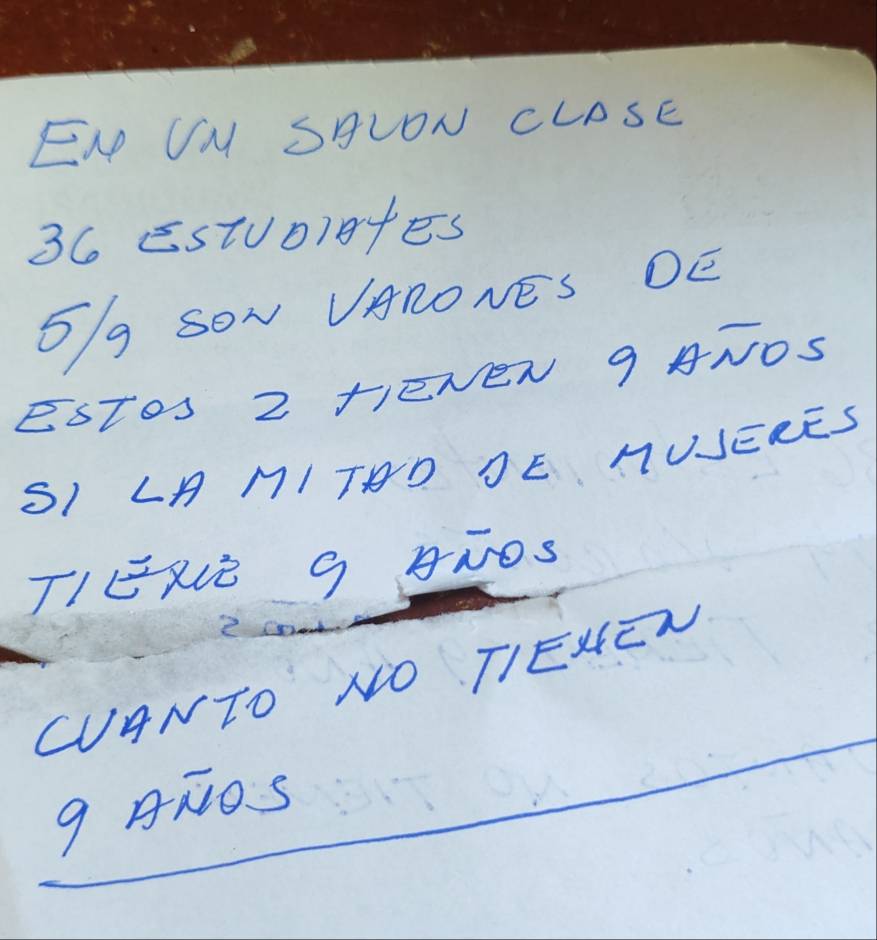 EN UN SALON CLASE
36 ESTUDIATES
5/9 SON VARONES DE
ESTOS 2 TIENEN 9 AÑOS
SI LA MITAD DE MUJERES
TIENE 9 AÑOS
CUANTO NO TIENEN
9 AÑOS